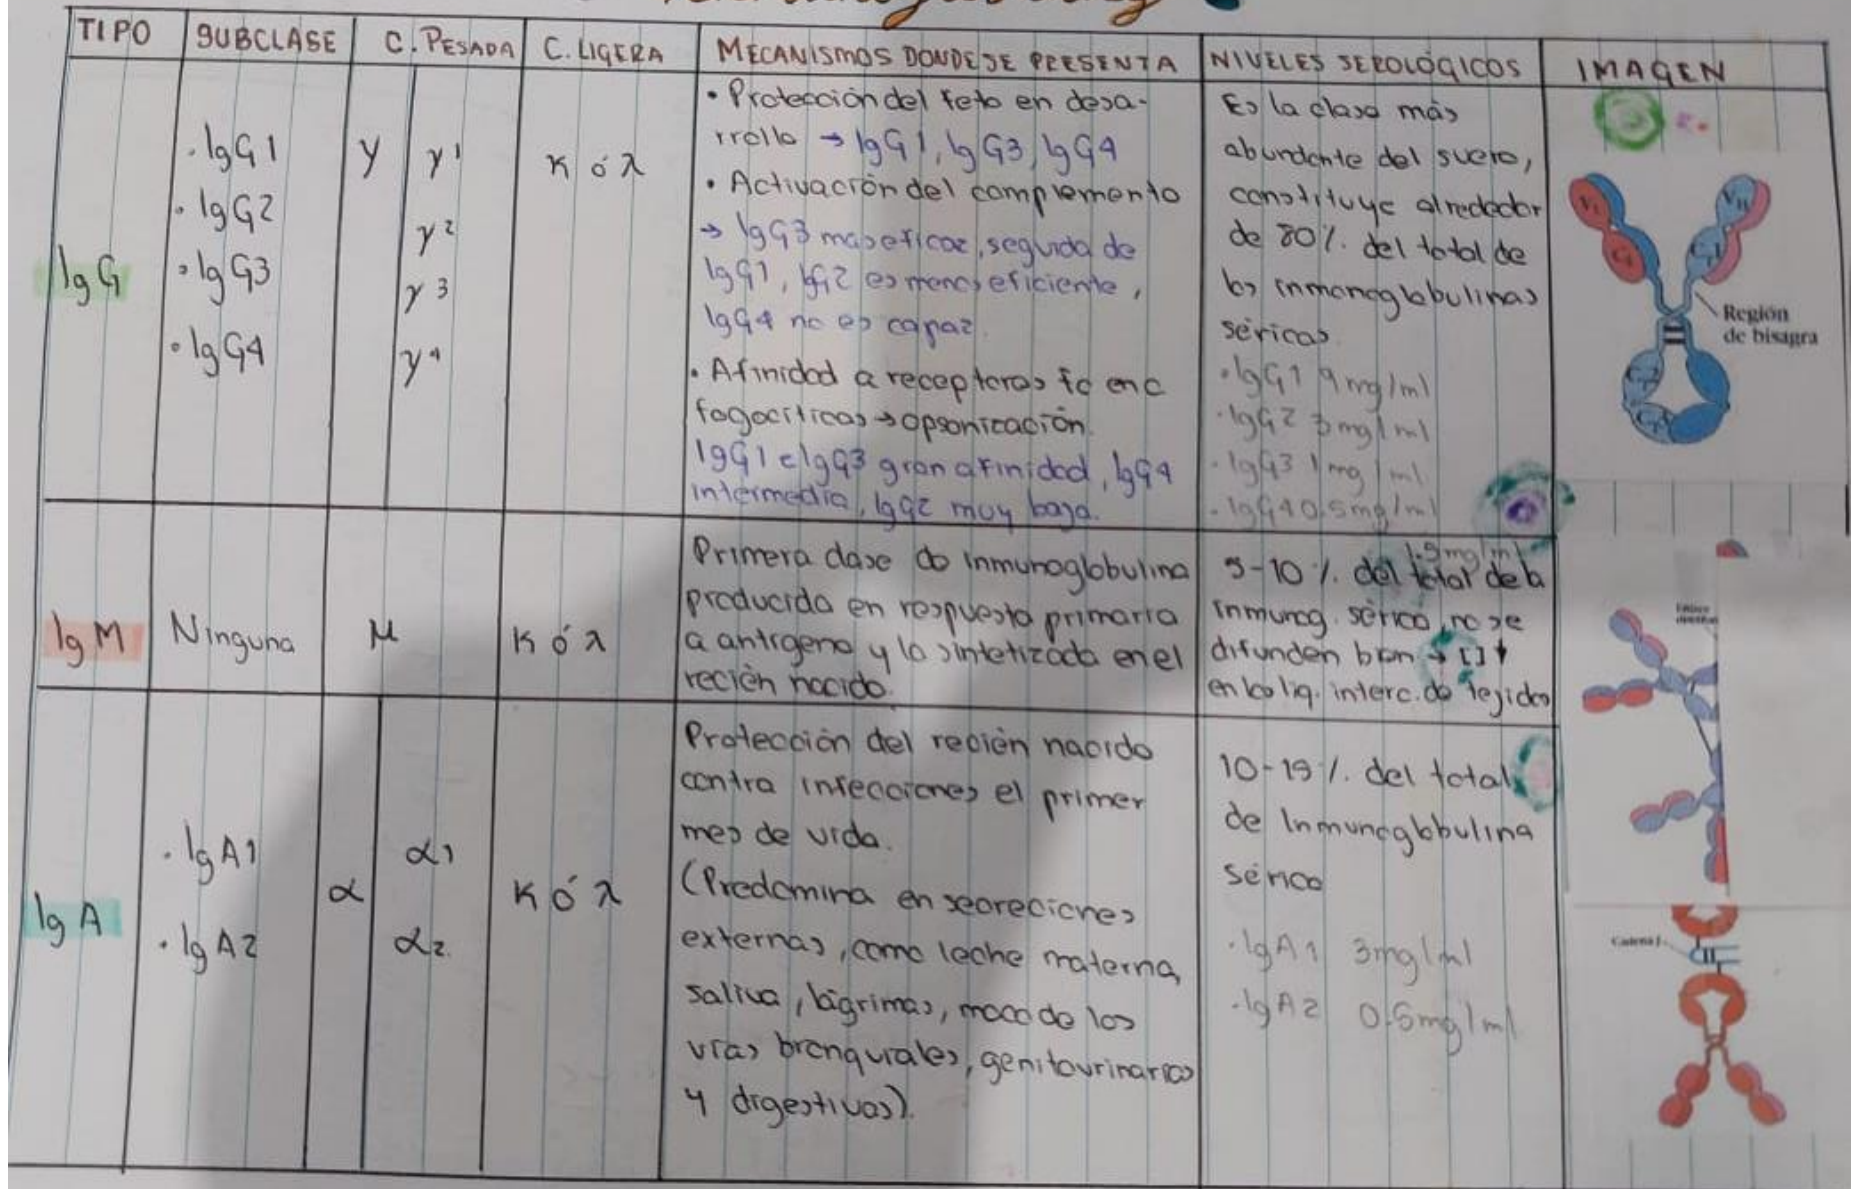 TIPO
SUBCLASE
C. PESADA
C. LIGERA
MECANISMOS DONDE SE PRESENTA
NIVELES SEROLÓGICOS
IMAGEN
IgG
· IgG1
· IgG2
· IgG3
· IgG4
γ
γ1
γ2
γ3
γ4
κ ó λ
· Protección del feto en desa-
rrollo → IgG1, IgG3, IgG4
· Activación del complemento
→ IgG3 mas eficaz, seguida de
IgG1, IgG2 es menos eficiente,
IgG4 no es capaz.
· Afinidad a receptores fc en c
fagocíticas → opsonización.
IgG1 e IgG3 gran afinidad, IgG4
intermedia, IgG2 muy baja.
Es la clase más
abundante del suero,
constituye alrededor
de 80%. del total de
las inmonoglobulinas
séricas.
· IgG1 9 mg/ml
· IgG2 3 mg/ml
· IgG3 1 mg/ml
· IgG4 0.5 mg/ml
VL
VH
CL
Región
de bisagra
IgM
Ninguna
μ
κ ó λ
Primera clase de inmunoglobulina
producida en respuesta primaria
a antígeno y la sintetizada en el
recién nacido.
1.5 mg/ml
5-10 %. del total de la
inmunog. sérica, no se
difunden bien → [ ] ↓
en los liq. interc. de tejidos
IgA
· IgA1
· IgA2
α
α1
α2.
κ ó λ
Protección del recién nacido
contra infecciones el primer
mes de vida.
(Predomina en secreciones
externas, como leche materna,
saliva, lágrimas, moco de los
vías bronquiales, genitourinarias
y digestivas).
10-15 %. del total
de Inmunoglobulina
sérica
· IgA1 3mg/ml
· IgA2 0.5mg/ml
Cadena J